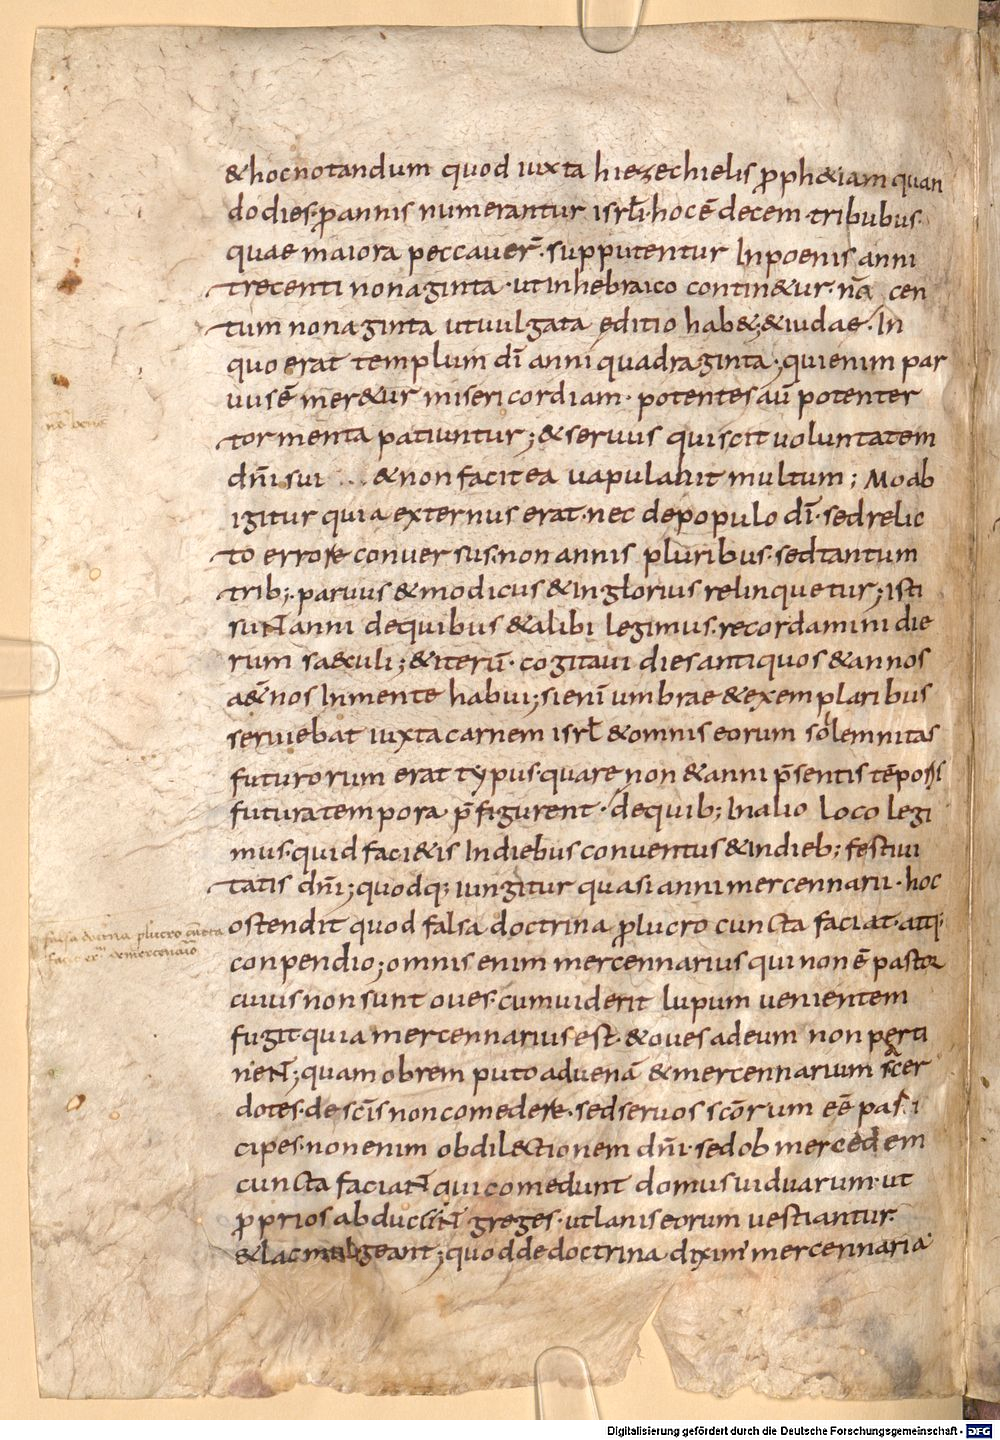 & hoc notandum quod iuxta hiezechielis ꝓph&iam quan
do dies· ꝓ annis numerantur isrƚi· hoc ē decem· tribubus·
quae maiora peccauer̄· supputentur In poenis anni
trecenti nonaginta· ut in hebraico contin&ur· nā cen
tum nonaginta ut uulgata editio hab&; & iudae· In
quo erat templum dī anni quadraginta· qui enim par
uus ē mer&ur misericordiam· potentes aū potenter
tormenta patiuntur; & seruus qui scit uoluntatem
dn̄i sui ... & non facit ea uapulauit multum; Moab
igitur quia externus erat· nec de populo dī· sed relic
to errore conuersus· non annis pluribus· sed tantum
trib;· paruus & modicus & Inglorius relinquetur; isti
sunt anni de quibus & alibi legimus· recordamini die
rum sa&culi; & iterū· cogitaui dies antiquos & annos
a&̄nos In mente habui; si enī umbrae & exemplaribus
seruiebat iuxta carnem isrƚ & omnis eorum sollemnitas
futurorum erat typus· quare non & anni p̄sentis tēporis
futura tempora p̄figurent· de quib; In alio loco legi
mus· quid faci&is In diebus conuentus & In dieb; festiui
tatis dn̄i; quodq; iungitur quasi anni mercennarii· hoc
ostendit quod falsa doctrina ꝓ lucro cuncta faciat· atq·
conpendio; omnis enim mercennarius qui non ē pastor
cuius non sunt oues· cum uiderit lupum uenientem
fugit· quia mercennarius est· & oues ad eum non perti
nent; quam ob rem puto aduenā & mercennarium sacer
dotes· de sc̄is non comedere· sed seruos sc̄orum eē parti
cipes· non enim ob dil&ctionem dn̄i· sed ob mercedem
cuncta faciant qui comedunt domus uiduarum· ut
ꝓprios abducunt greges· ut lanis eorum uestiantur·
& lac mulgeant; quod de doctrina diximꝰ mercennaria·
falsa doctrina ꝓ lucro cuncta